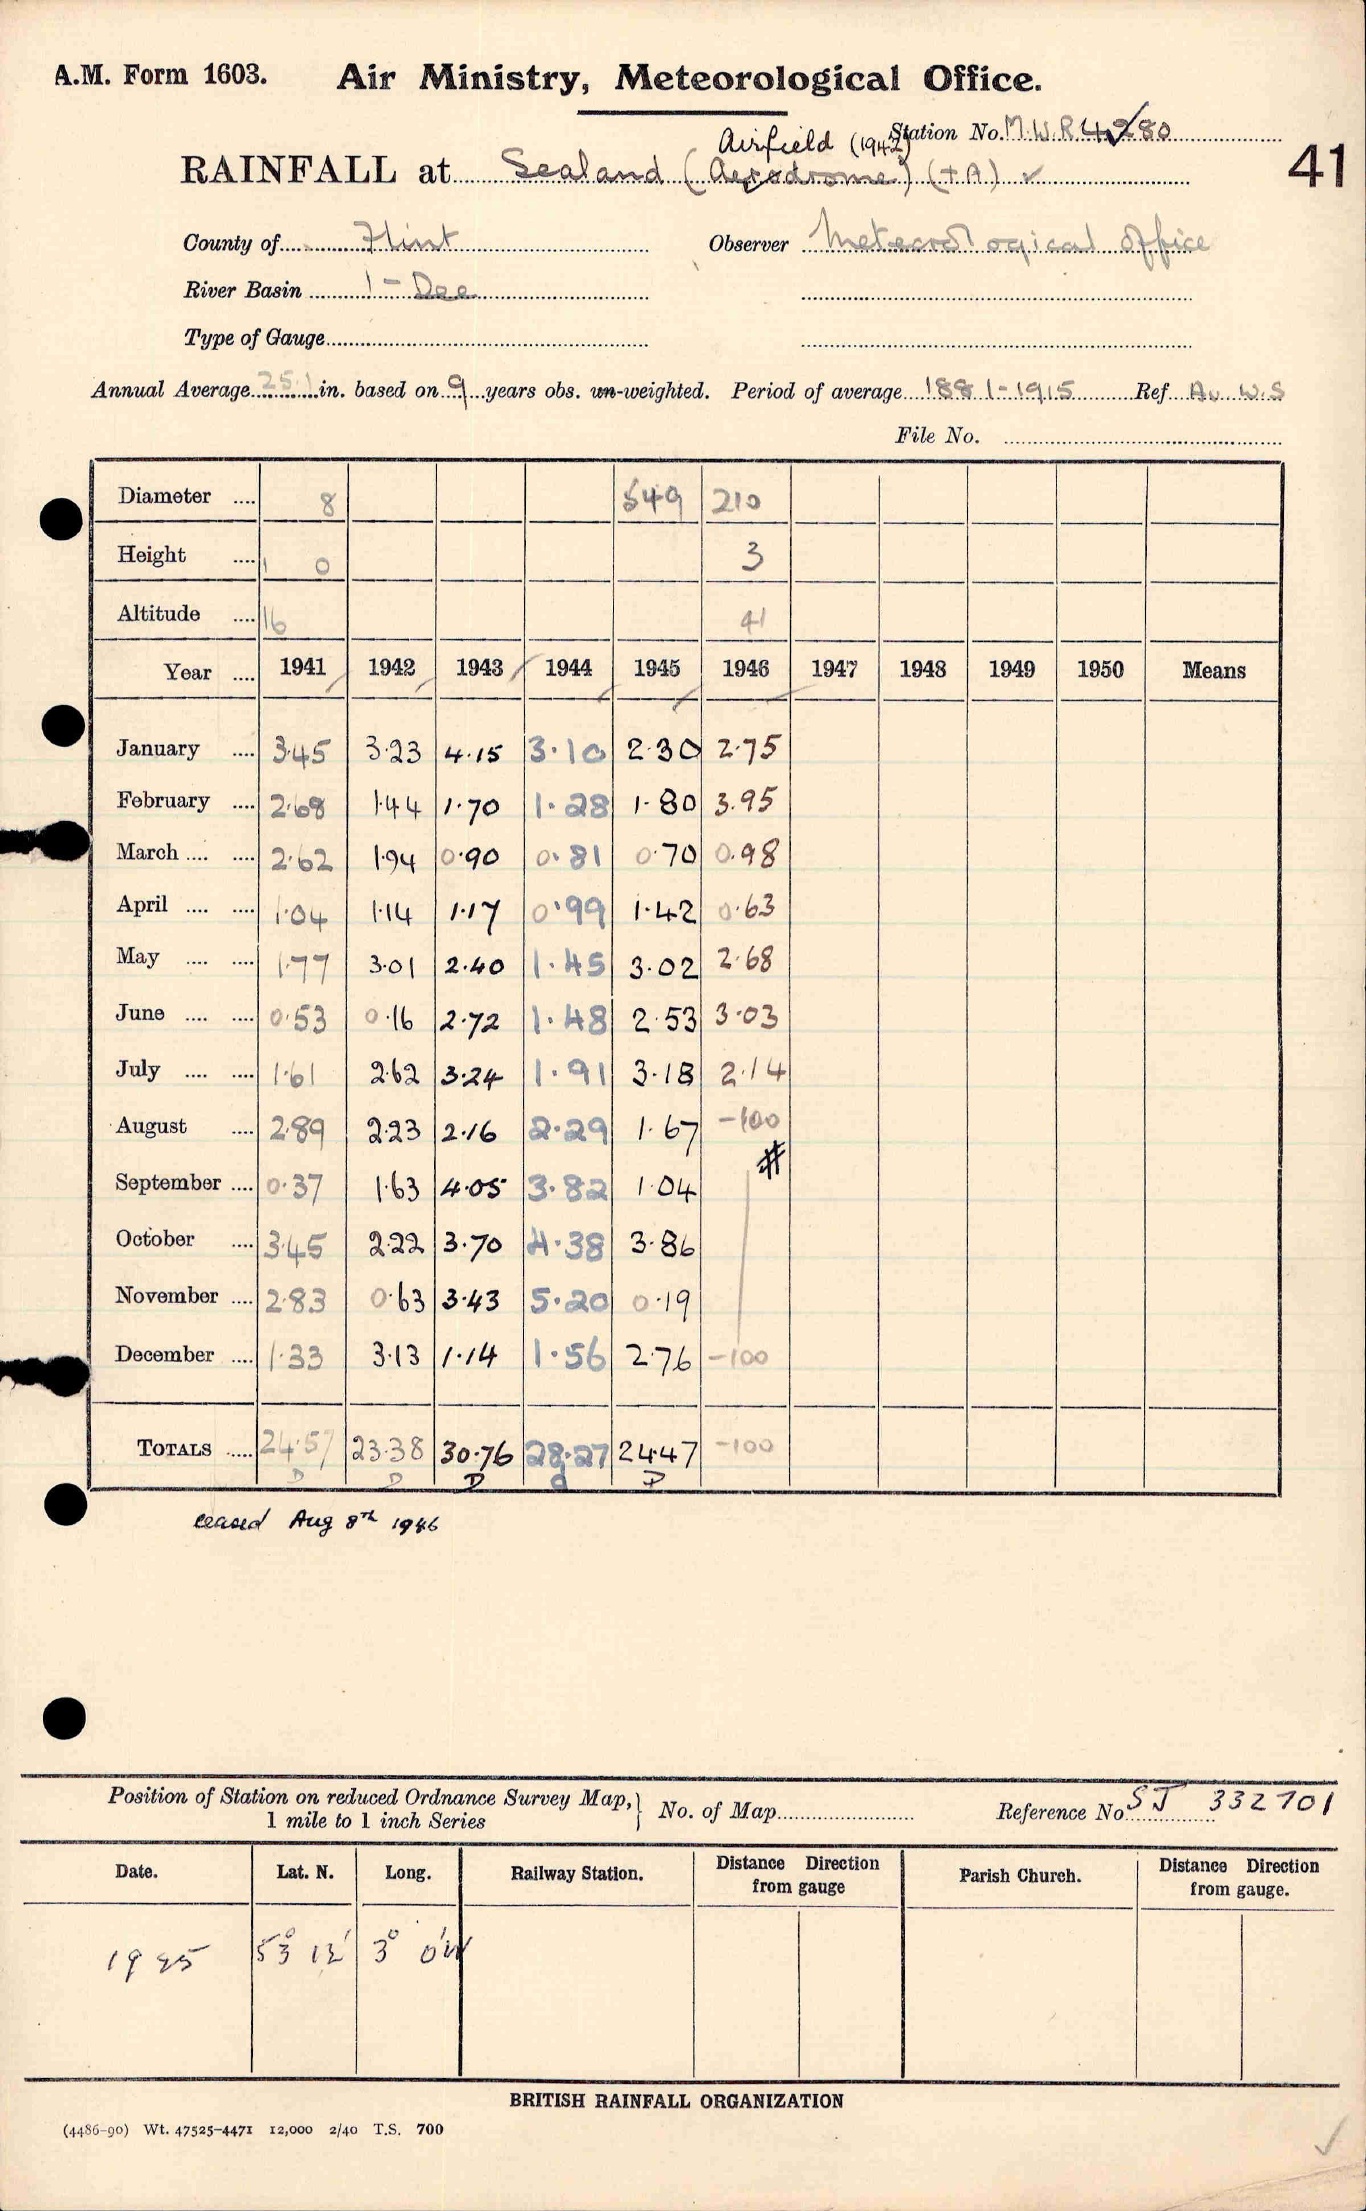 A.M. Form 1603. Air Ministry, Meteorological Office.
Station No. M.W.R 4280
41
Airfield (1942)
RAINFALL at Sealand (Aerodrome) (+A) ✓
County of Flint Observer Meteorological Office
River Basin 1 - Dee
Type of Gauge
Annual Average 25.1 in. based on 9 years obs. un-weighted. Period of average 1881-1915 Ref. Av. W.S
File No.
Diameter .... 8 549 210
Height .... 1 0 3
Altitude .... 16 41
Year .... 1941 1942 1943 1944 1945 1946 1947 1948 1949 1950 Means
January .... 3.45 3.23 4.15 3.10 2.30 2.75
February .... 2.68 1.44 1.70 1.28 1.80 3.95
March .... .... 2.62 1.94 0.90 0.81 0.70 0.98
April .... .... 1.04 1.14 1.17 0.99 1.42 0.63
May .... .... 1.77 3.01 2.40 1.45 3.02 2.68
June .... .... 0.53 0.16 2.72 1.48 2.53 3.03
July .... .... 1.61 2.62 3.24 1.91 3.18 2.14
August .... 2.89 2.23 2.16 2.29 1.67 -100
#
September .... 0.37 1.63 4.05 3.82 1.04
October .... 3.45 2.22 3.70 4.38 3.86
November .... 2.83 0.63 3.43 5.20 0.19
December .... 1.33 3.13 1.14 1.56 2.76 -100
TOTALS .... 24.57 23.38 30.76 28.27 24.47 -100
D D D d D
ceased Aug 8th 1946
Position of Station on reduced Ordnance Survey Map,
1 mile to 1 inch Series
No. of Map
Reference No. SJ 332701
Date. Lat. N. Long. Railway Station. Distance Direction from gauge Parish Church. Distance Direction from gauge.
53° 12' 3° 0'W
BRITISH RAINFALL ORGANIZATION
(4486-90) Wt. 47525-4471 12,000 2/40 T.S. 700